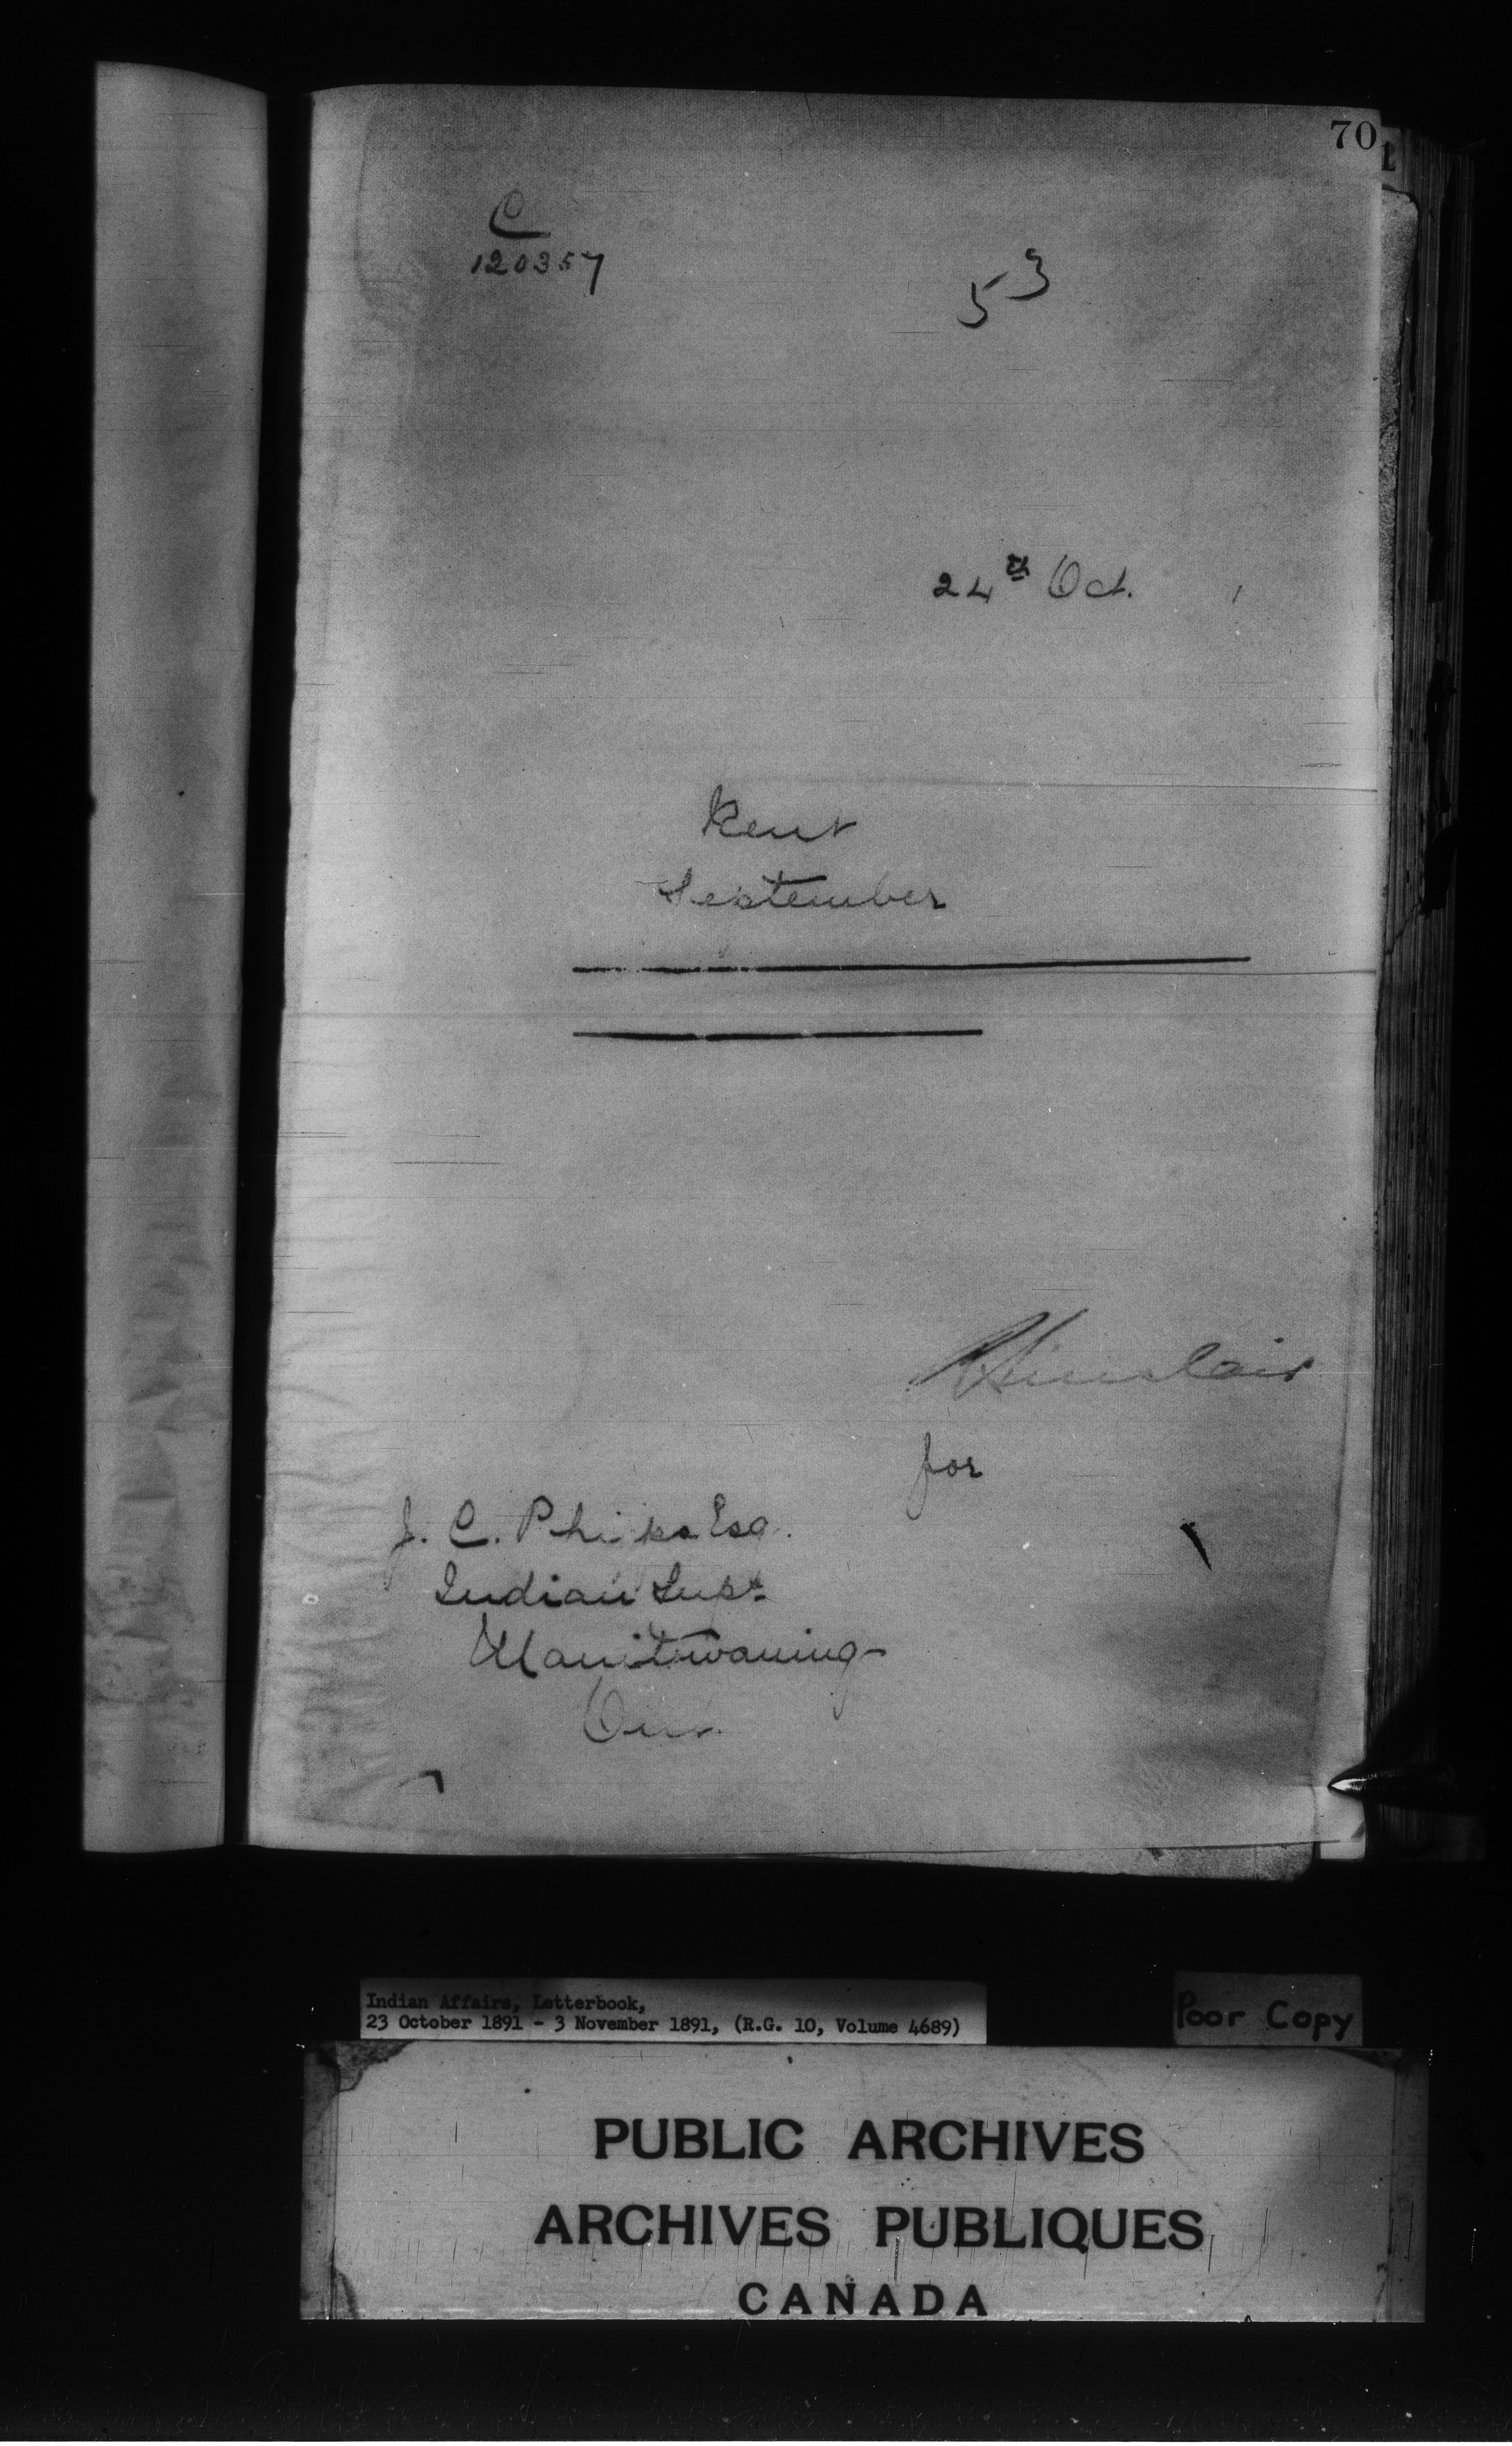 70
C
120357
53
24th Oct.
Rent
September
Sinclair
for
J. C. Phipps Esq.
Indian Supt
Manitowaning
Ont.
Indian Affairs, Letterbook,
23 October 1891 - 3 November 1891, (R.G. 10, Volume 4689)
Poor Copy
PUBLIC ARCHIVES
ARCHIVES PUBLIQUES
CANADA